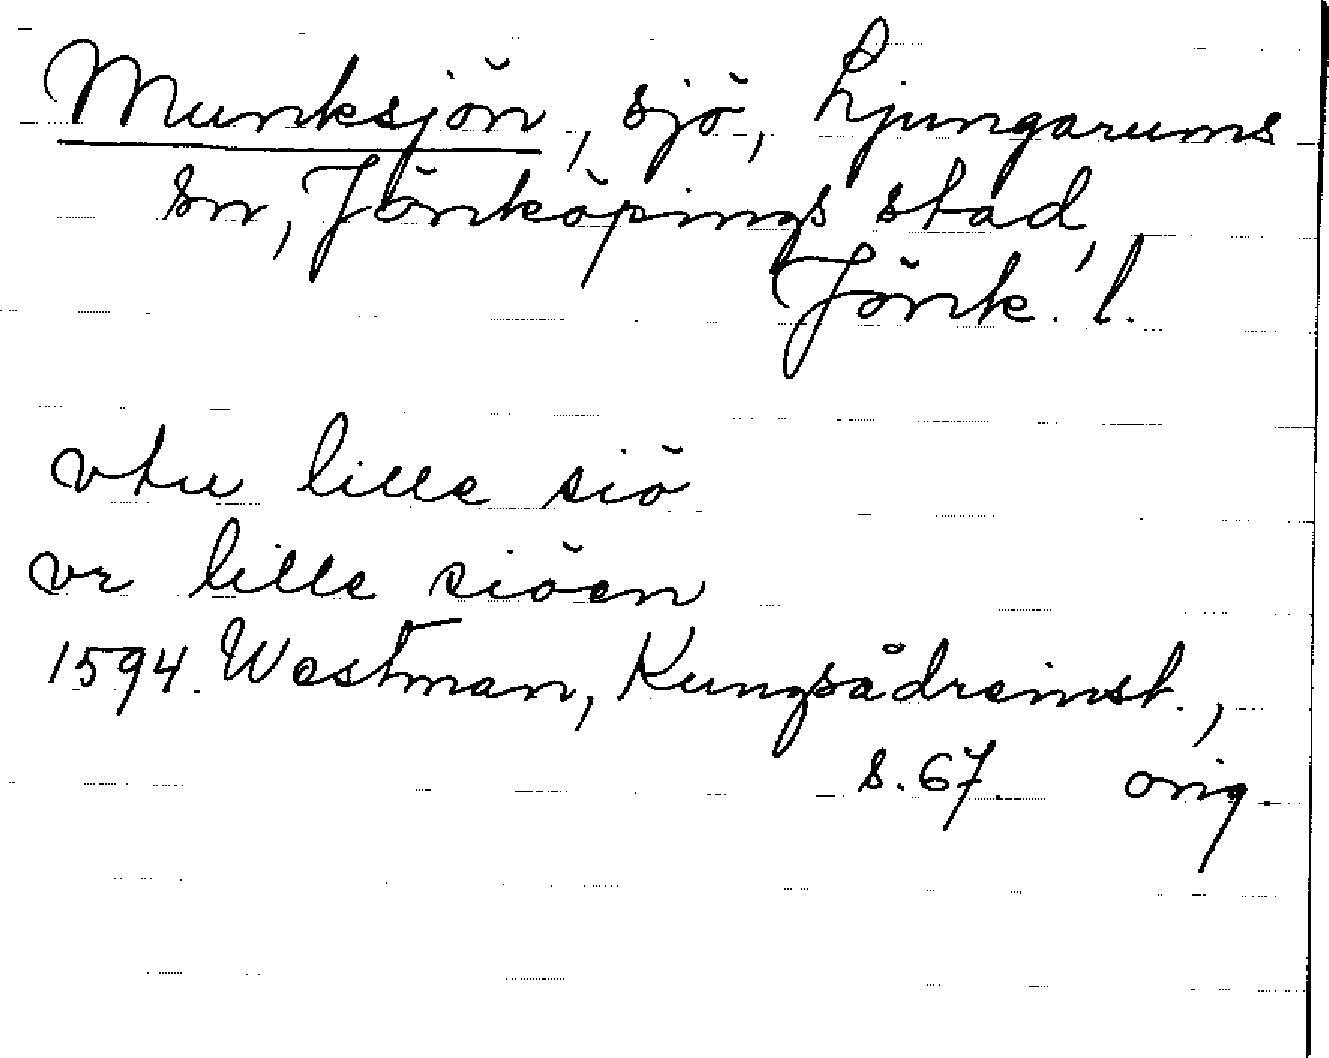 Munksjön, sjö, Ljungarums
sn, Jönköpings stad,
Jönk. l.
vtu lille siö
vr lille siöen
1594. Westman, Kungsådreinst.,
s. 67. orig.